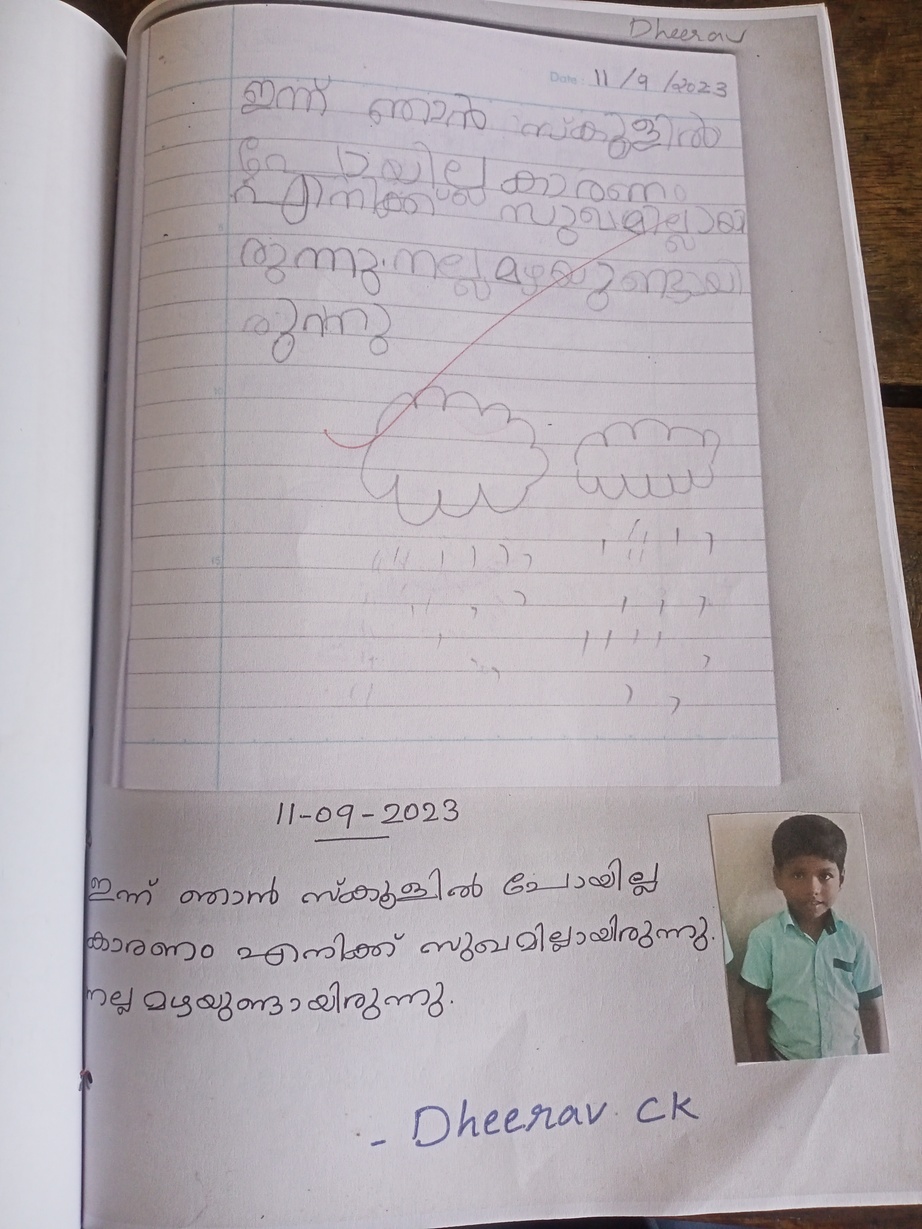 Dheerav
Date: 11/9/2023
ഇന്ന് ഞാൻ സ്കൂളിൽ
പോയില്ല കാരണം
എനിക്ക് സുഖമില്ലായി
രുന്നു. നല്ല മഴയുണ്ടായി
രുന്നു
11-09-2023
ഇന്ന് ഞാൻ സ്കൂളിൽ പോയില്ല
കാരണം എനിക്ക് സുഖമില്ലായിരുന്നു.
നല്ല മഴയുണ്ടായിരുന്നു.
- Dheerav. CK